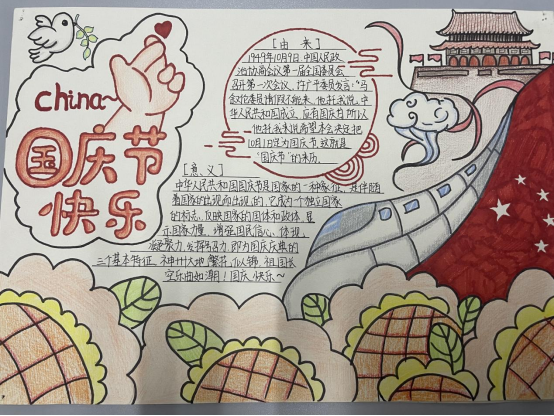 China~
国庆节
快乐
[由 来]
1949年10月9日,中国人民政
治协商会议第一届全国委员会
召开第一次会议,许广平委员发言:"马
叙伦委员请假不能来,他托我说,中
华人民共和国成立,应有国庆节,所以
他托我来说希望本会决定把
10月1日定为国庆节,这就是
"国庆节"的来历。
[意义]
中华人民共和国国庆节是国家的一种象征,其伴随
着国家的出现而出现的,它成为一个独立国家
的标志,反映国家的国体和政体,显
示国家力量,增强国民信心,体现
凝聚力,发挥号召力,即为国庆庆典的
三个基本特征,神州大地,繁花似锦,祖国长
空乐曲如潮!国庆快乐~